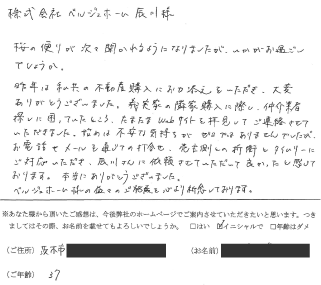 株式会社 ベルジェホーム 辰川様
桜の便りが次々聞かれるようになりましたが、いかがお過ごし
でしょうか。
昨年は私共の不動産購入にお力添えをいただき、大変
ありがとうございました。我実家の隣家購入に際し、仲介業者
探しに困っていたところ、たまたまWebサイトを拝見してご連絡させて
いただきました。始めは不安な気持ちがゼロではありませんでしたが、
お電話やメールを通じての打合せ、売主側との折衝とタイムリーに
ご対応いただき、辰川さんに依頼させていただいて良かったと感じて
おります。本当にありがとうございました。
ベルジェホーム様の益々のご発展を心よりお祈りしております。
※あなた様から頂いたご感想は、今後弊社のホームページでご案内させていただきたいと思います。つき
ましてはその際、お名前を載せてもよろしいでしょうか。 □はい ☑イニシャルで □年齢はダメ
(ご住所) 厚木市 (お名前)
(ご年齢) 37